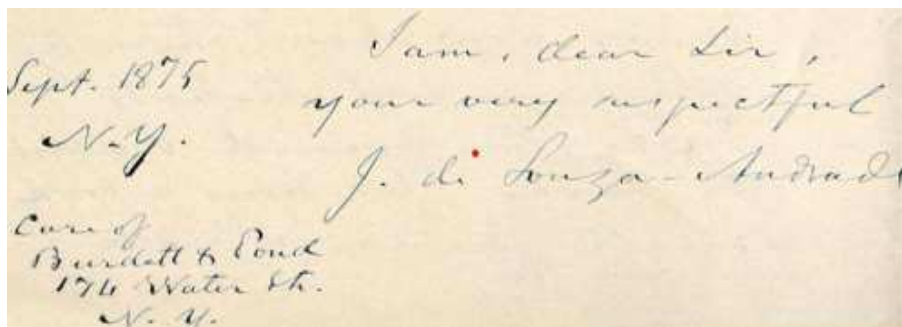 I am, dear Sir,
your very respectful
J. de Souza-Andrade
Sept. 1875
N.Y.
Care of
Burdett & Pond
174 Water Str.
N.Y.